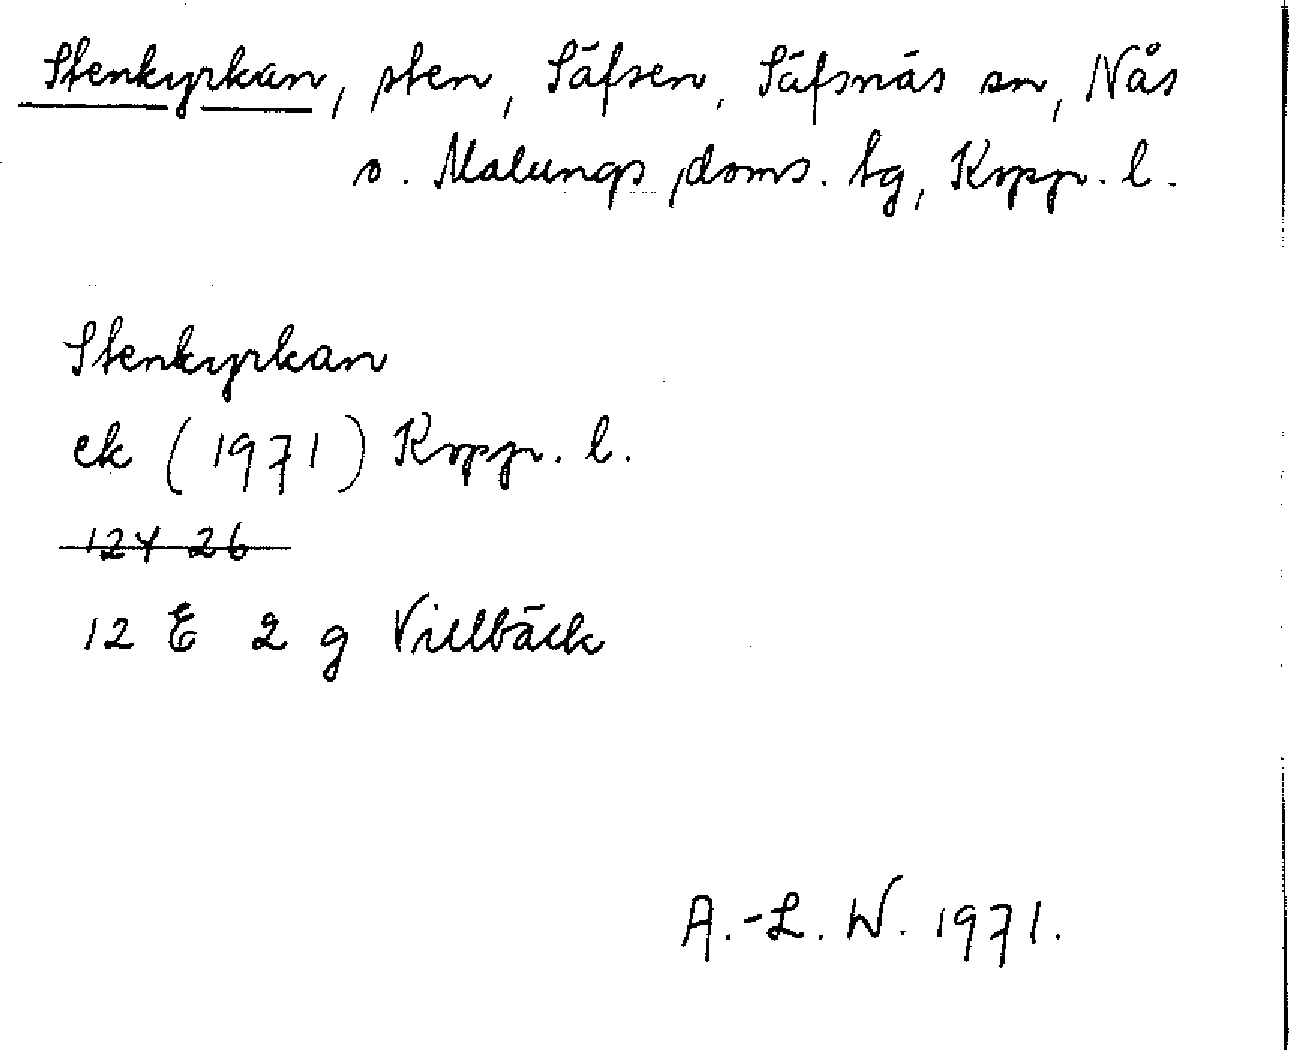 Stenkyrkan, sten, Säfsen, Säfsnäs sn, Nås
o. Malungs doms. tg, Kopp. l.
Stenkyrkan
ek (1971) Kopp. l.
12Y 26
12 E 2 g Villbäck
A.-L. W. 1971.